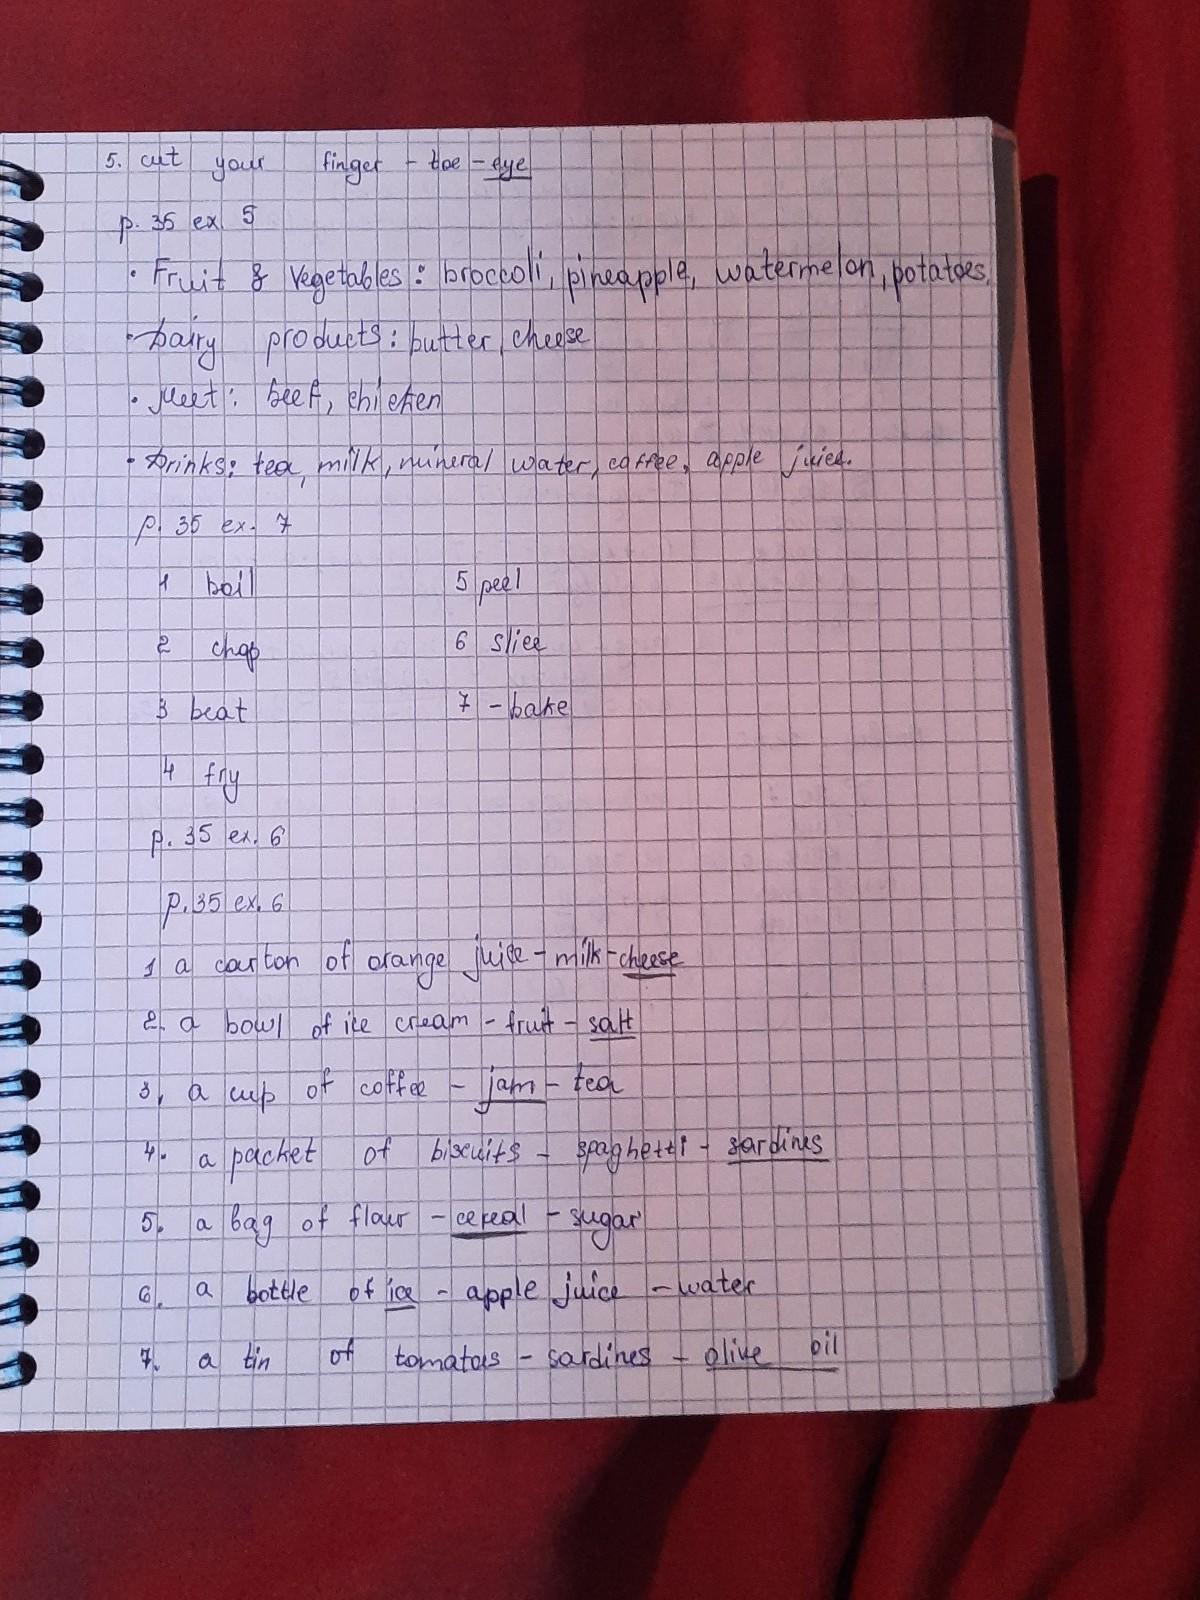 5. cut your finger - toe - eye
p. 35 ex. 5
• Fruit & Vegetables: broccoli, pineapple, watermelon, potatoes.
• Dairy products: butter, cheese
• Meet: beef, chicken
• Drinks: tea, milk, mineral water, coffee, apple juice.
p. 35 ex. 7
1 boil 5 peel
2 chop 6 slice
3 beat 7 - bake
4 fry
p. 35 ex. 6
p. 35 ex. 6
1 a carton of orange juice - milk - cheese
2. a bowl of ice cream - fruit - salt
3, a cup of coffee - jam - tea
4. a packet of biscuits - spaghetti - sardines
5. a bag of flour - cereal - sugar
6. a bottle of ice - apple juice - water
7. a tin of tomatoes - sardines - olive oil